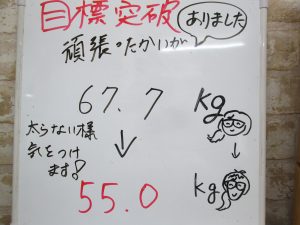 目標突破
頑張ったかいが
ありました
67.7 kg
↓
太らない様
気をつけ
ます!
55.0 kg